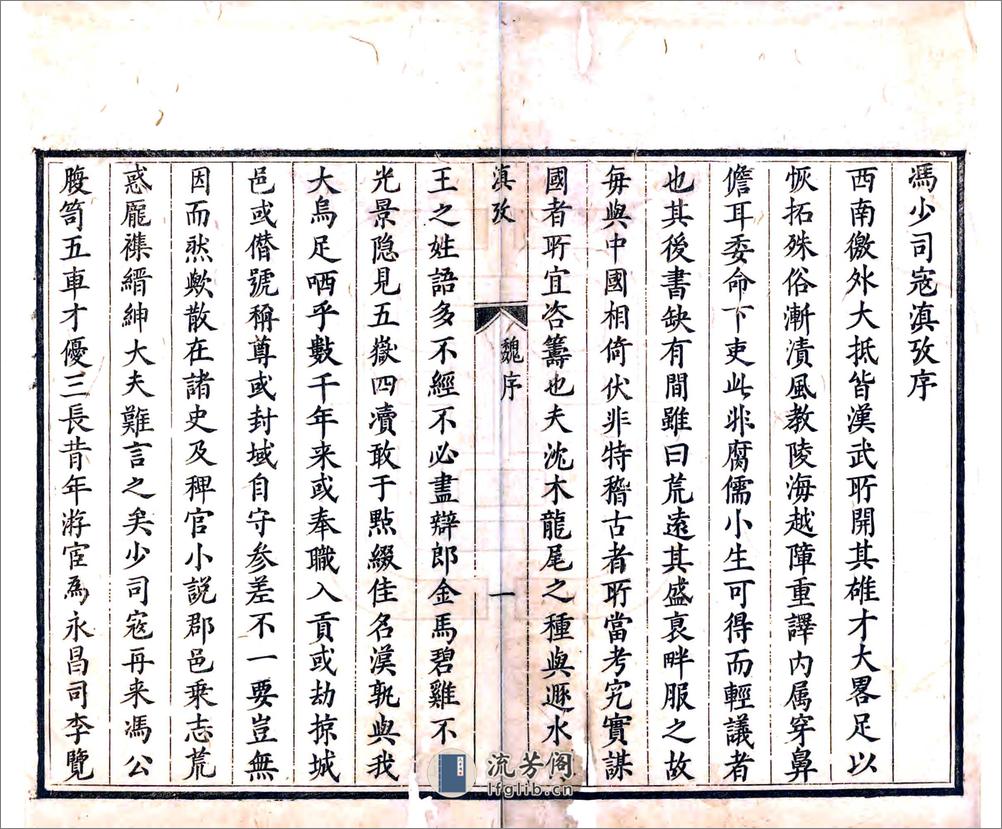 馮少司寇滇攷序
西南徼外大抵皆漢武所開其雄才大畧足以
恢拓殊俗漸漬風教陵海越障重譯內属穿鼻
儋耳委命下吏此非腐儒小生可得而輕議者
也其後書缺有間雖曰荒遠其盛衰畔服之故
每與中國相倚伏非特稽古者所當考究實謀
國者所宜咨籌也夫沈木龍尾之種與遯水
滇攷
魏序
一
王之姓語多不經不必盡辯郎金馬碧雞不
光景隐見五嶽四瀆敢于點綴佳名漠孰與我
大烏足哂乎數千年来或奉職入貢或劫掠城
邑或僭號稱尊或封域自守參差不一要豈無
因而然歟散在諸史及稗官小說郡邑乘志荒
惑厖襍縉紳大夫難言之矣少司寇再来馮公
腹笥五車才優三長昔年游宦爲永昌司李覽
流芳阁
lfglib.cn